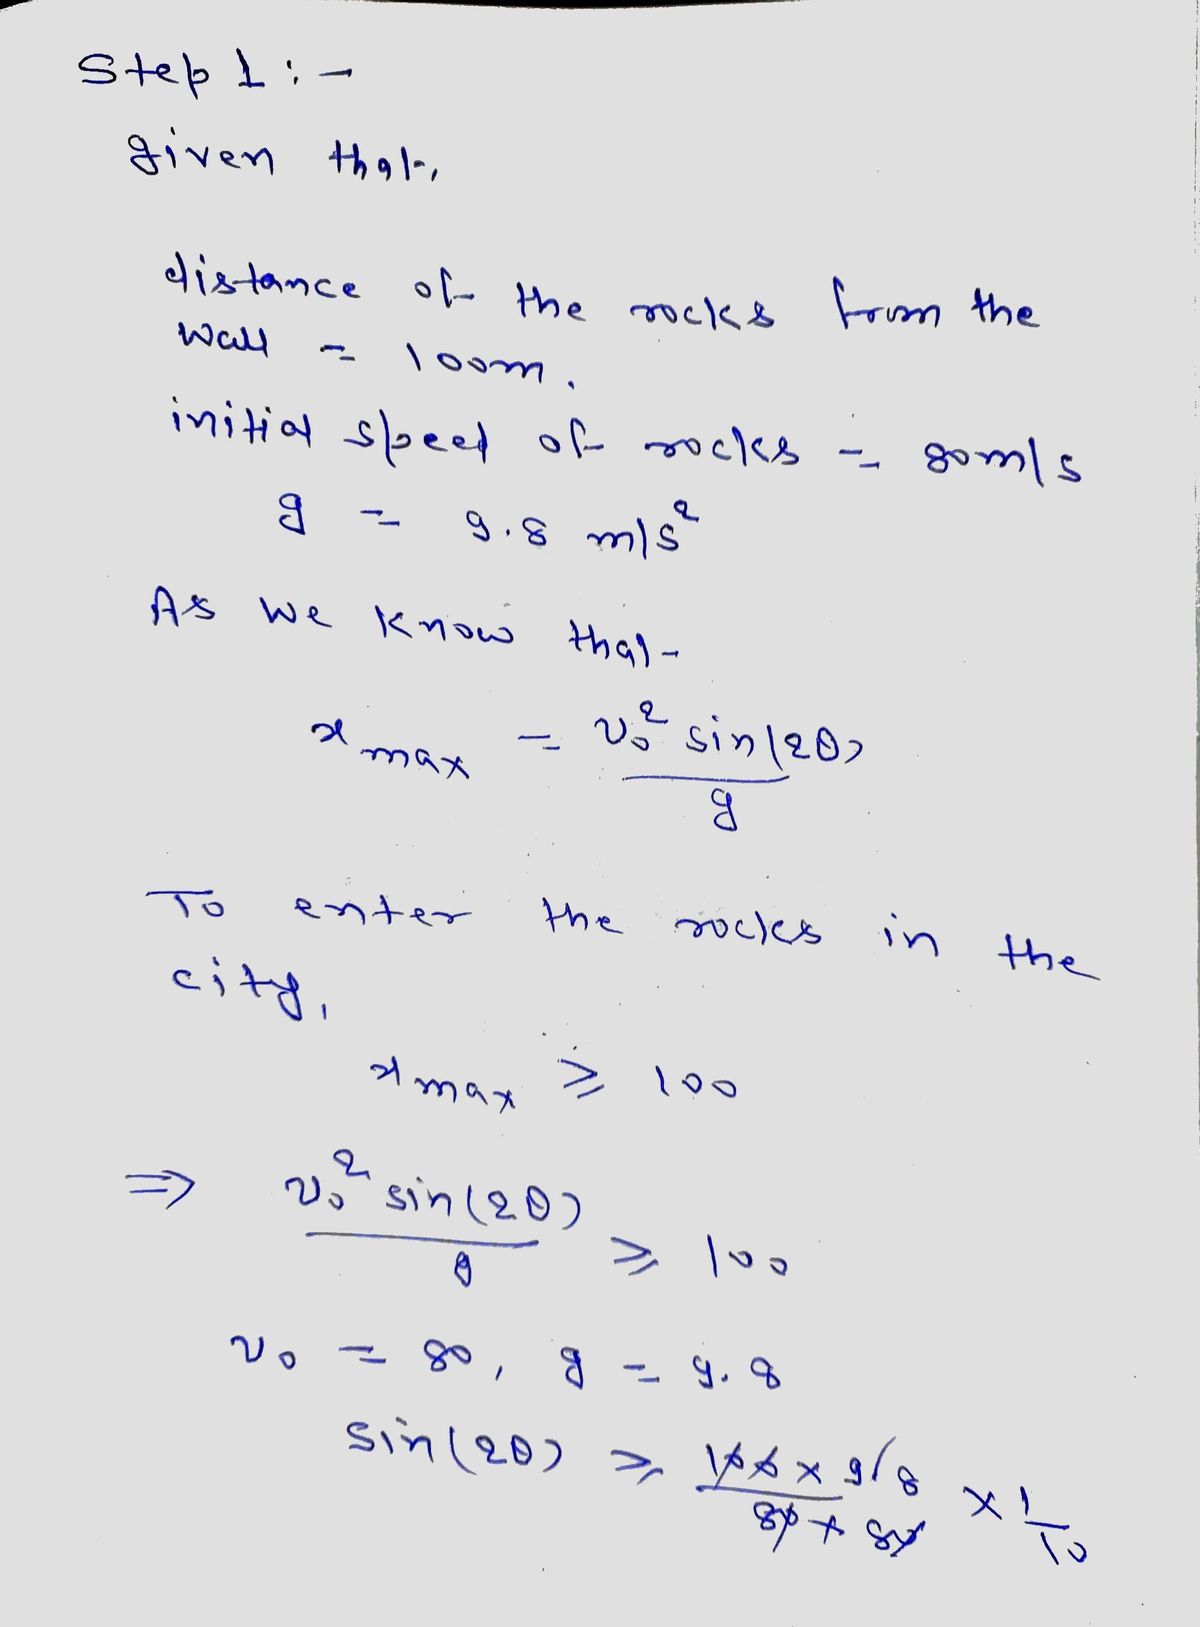 Step 1 : -
given that,
distance of the rocks from the
wall = 100m.
initial speed of rocks = 80m/s
g = 9.8 m/s²
As we know that
x max = v₀² sin(2θ) / g
To enter the rocks in the
city,
x max ≥ 100
⇒ v₀² sin(2θ) / g ≥ 100
v₀ = 80, g = 9.8
sin(2θ) ≥ 100 × 9.8 / 80 × 80 × 1/10